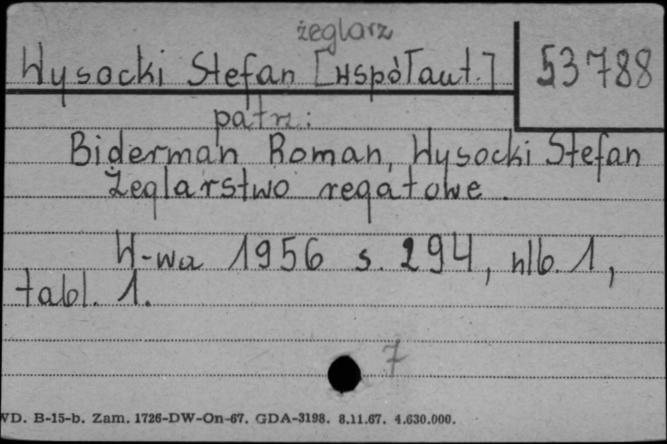 żeglarz
Wysocki Stefan [współaut.] 53788
patrz:
Biderman Roman, Wysocki Stefan
Żeglarstwo regatowe.
W-wa 1956 s. 294, nlb. 1,
tabl. 1.
7
WD. B-15-b. Zam. 1726-DW-On-67. GDA-3198. 8.11.67. 4.630.000.